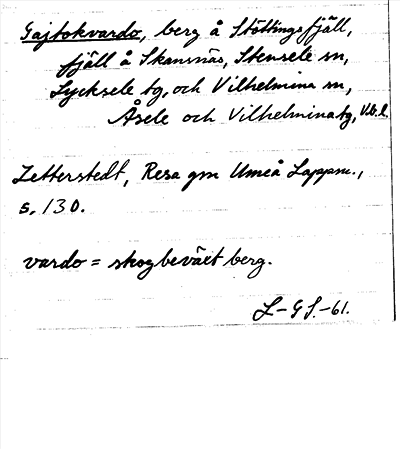 Gajtokvardo, berg å Stöttingsfjäll,
fjäll å Skansnäs, Stensele sn,
Lycksele tg, och Vilhelmina sn,
Åsele och Vilhelmina tg, Vb. l.
Zetterstedt, Resa gm Umeå Lappm.,
s. 130.
vardo = skogbeväxt berg.
L-GS.-61.